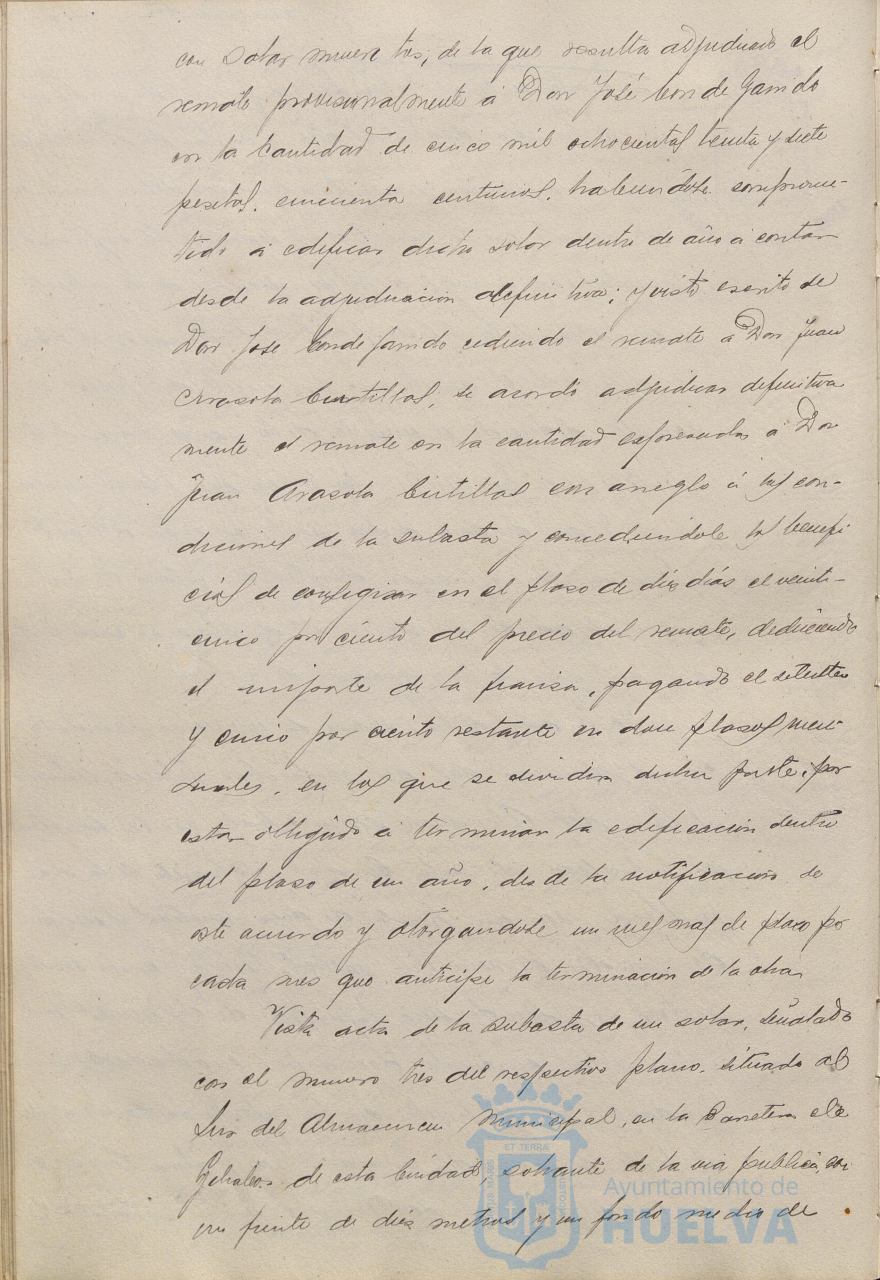 con solar numero tres, de la que resulta adjudicado el
remate provisionalmente á Don José Conde Garrido
en la cantidad de cinco mil ochocientas treinta y siete
pesetas, cincuenta centimos, habiendose comprome-
tido á edificar dicho solar dentro de año á contar
desde la adjudicacion definitiva; y visto escrito de
Don Jose Conde Garrido cediendo el remate a Don Juan
se acordó adjudicar definitiva
mente el remate en la cantidad expresada á Don
Juan con arreglo á las con-
diciones de la subasta y concediendole los benefi
cios de consignar en el plazo de diez dias el veinti-
cinco por ciento del precio del remate, deduciendo
el importe de la fianza, pagando el setenta
y cinco por ciento restante en doce plazos men-
suales, en los que se dividira dicha parte; por
estar obligado á terminar la edificación dentro
del plazo de un año, desde la notificacion de
este acuerdo y otorgandole un mes mas de plazo por
cada mes que anticipe la terminación de la obra
Vista acta de la subasta de un solar, señalado
con el numero tres del respectivo plano, situado al
Sur del Almacen Municipal, en la Carretera de
Gibraleon de esta Ciudad, sobrante de la via publica, con
un frente de diez metros y un fondo medio de
Ayuntamiento de
HUELVA